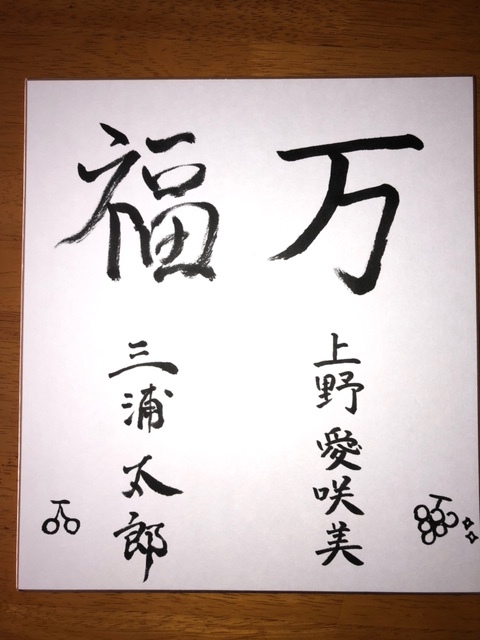 万福
上野愛咲美
三浦太郎